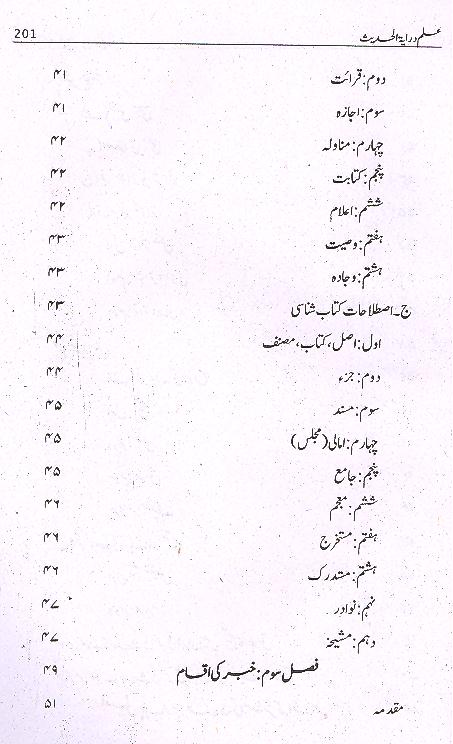 علم درایۃ الحدیث 201
دوم: قرائت ۴۱
سوم: اجازہ ۴۱
چہارم: مناولہ ۴۲
پنجم: کتابت ۴۲
ششم: اعلام ۴۲
ہفتم: وصیت ۴۳
ہشتم: وجادہ ۴۳
ج۔ اصطلاحات کتاب شناسی ۴۳
اول: اصل، کتاب، مصنف ۴۴
دوم: جزء ۴۴
سوم: مسند ۴۵
چہارم: امالی (مجلس) ۴۵
پنجم: جامع ۴۵
ششم: معجم ۴۶
ہفتم: مستخرج ۴۶
ہشتم: مستدرک ۴۶
نہم: نوادر ۴۷
دہم: مشیخۃ ۴۷
فصل سوم: خبر کی اقسام ۴۹
مقدمہ ۵۱